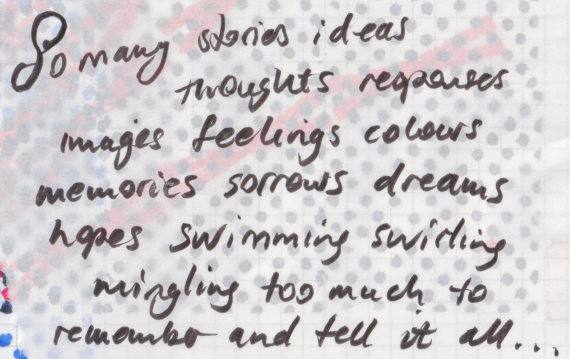 So many stories ideas
thoughts responses
images feelings colours
memories sorrows dreams
hopes swimming swirling
mingling too much to
remember and tell it all...